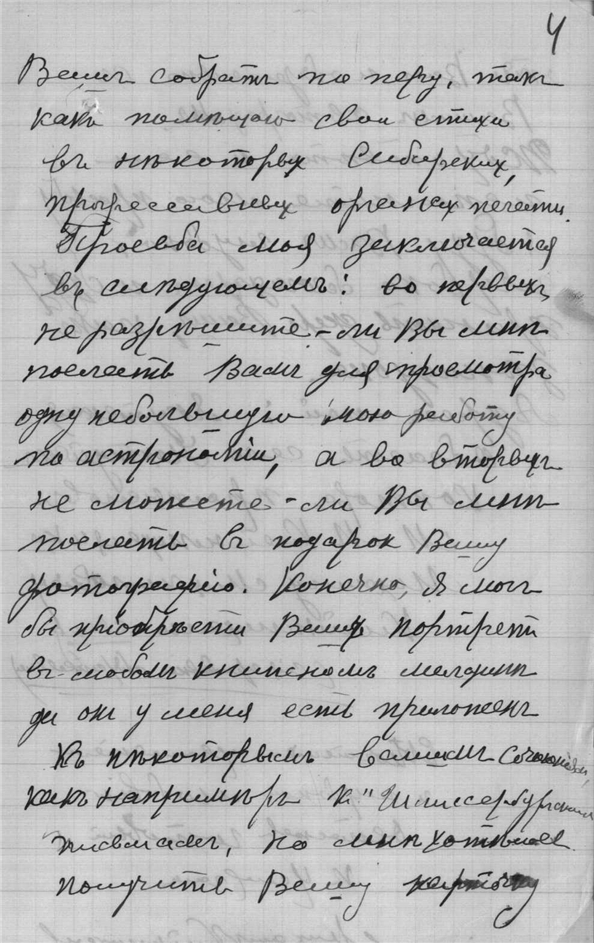 4
Вашъ собратъ по перу, такъ
какъ помѣщаю свои стихи
въ нѣкоторых Сибирских,
прогрессивных органах печати.
Просьба моя заключается
въ слѣдующемъ: во первыхъ
не разрѣшите-ли Вы мнѣ
послать Вамъ для просмотра
одну небольшую мою работу
по астрономіи, а во вторыхъ
не можете-ли Вы мнѣ
послать в подарок Вашу
фотографію. Конечно, я могъ
бы пріобрѣсти Вашъ портретъ
въ любомъ книжномъ магазинѣ
да он у меня есть приложенъ
къ нѣкоторымъ Вашимъ сочиненіям,
какъ напримѣръ к "Шлиссельбургским
письмамъ, но мнѣ хотѣлось
получить Вашу карточку